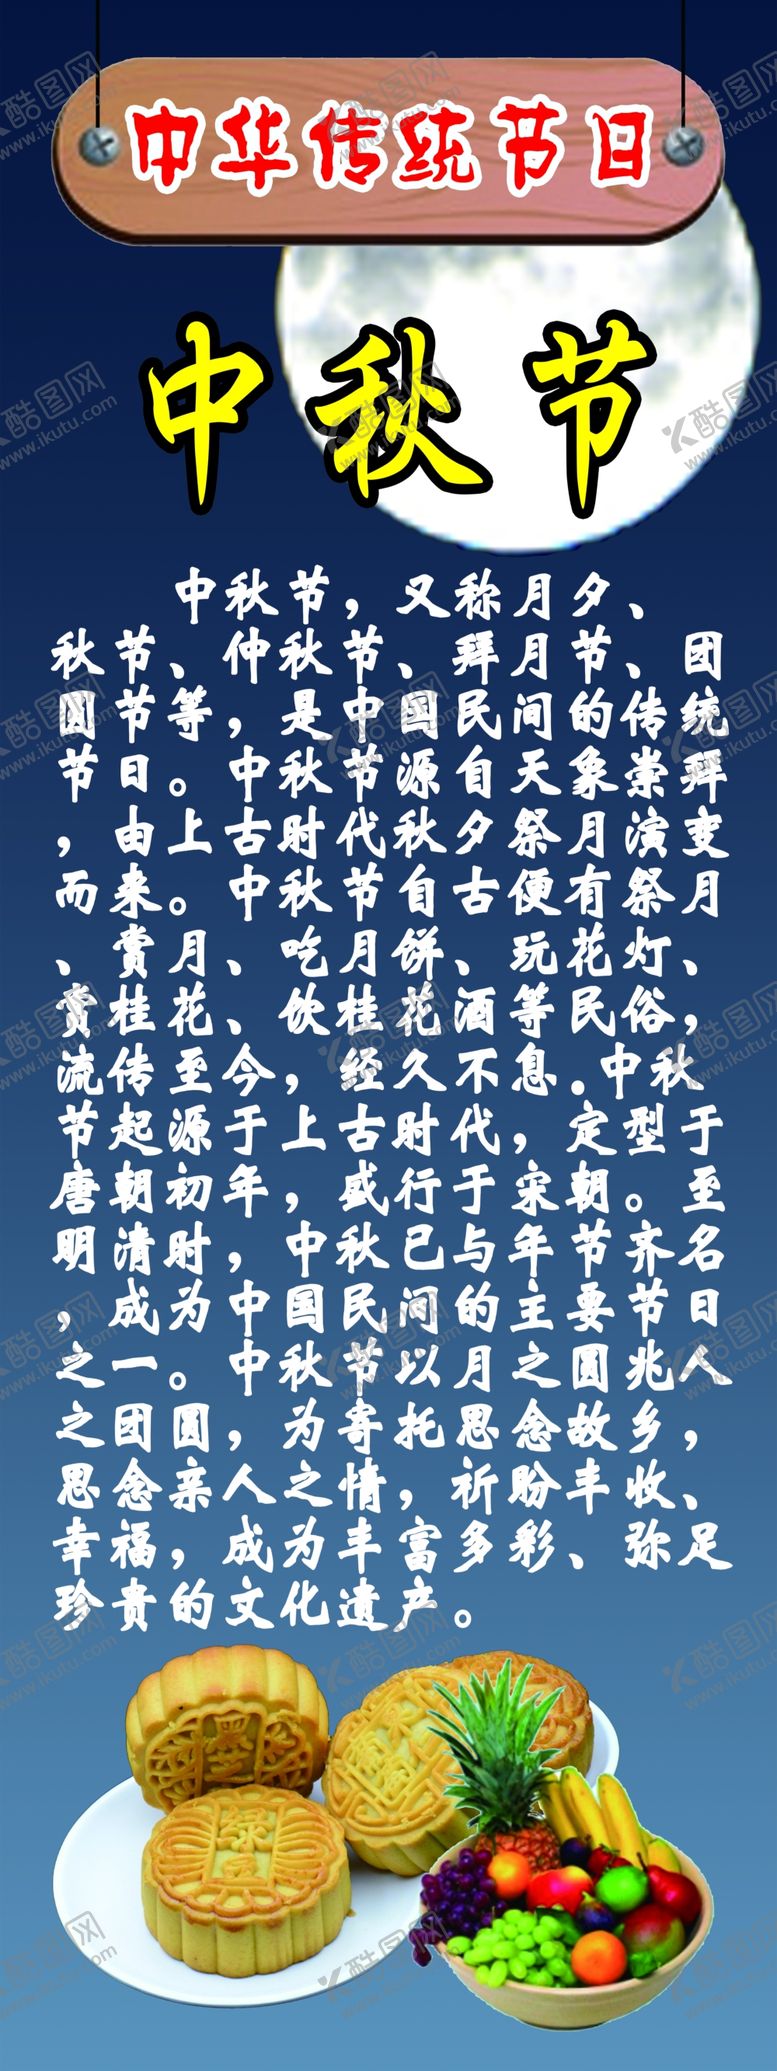 中华传统节日
中秋节
中秋节，又称月夕、
秋节、仲秋节、拜月节、团
圆节等，是中国民间的传统
节日。中秋节源自天象崇拜
，由上古时代秋夕祭月演变
而来。中秋节自古便有祭月
、赏月、吃月饼、玩花灯、
赏桂花、饮桂花酒等民俗，
流传至今，经久不息.中秋
节起源于上古时代，定型于
唐朝初年，盛行于宋朝。至
明清时，中秋已与年节齐名
，成为中国民间的主要节日
之一。中秋节以月之圆兆人
之团圆，为寄托思念故乡，
思念亲人之情，祈盼丰收、
幸福，成为丰富多彩、弥足
珍贵的文化遗产。
绿豆
酷图网
www.ikutu.com